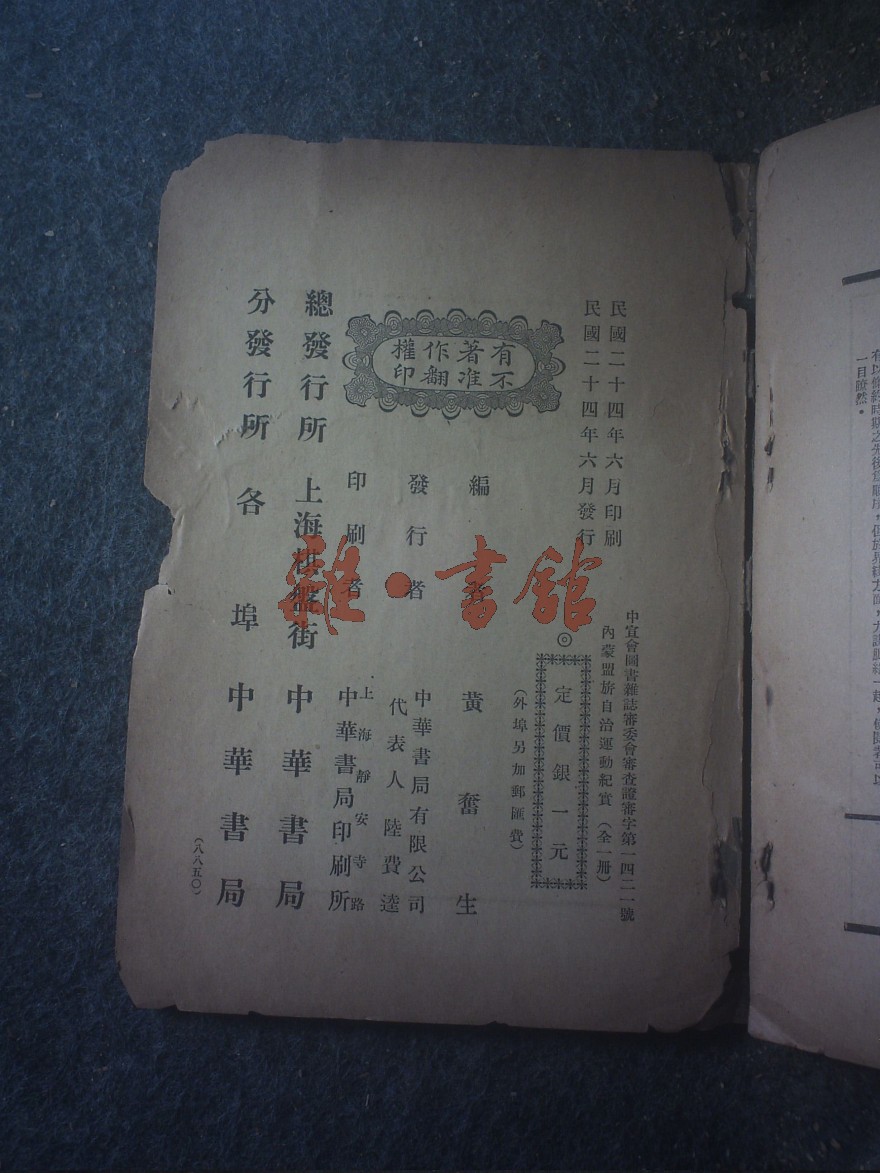 民國二十四年六月印刷
民國二十四年六月發行
中宣會圖書雜誌審委會審查證審字第一四二一號
內蒙盟旂自治運動紀實（全一册）
◎定價銀一元
（外埠另加郵匯費）
有著作權
不准翻印
編者 黄奮生
發行者 中華書局有限公司
代表人 陸費逵
印刷者 上海靜安寺路
中華書局印刷所
總發行所 上海棋盤街 中華書局
分發行所 各埠 中華書局
（八八五〇）
雜·書館
一目瞭然。